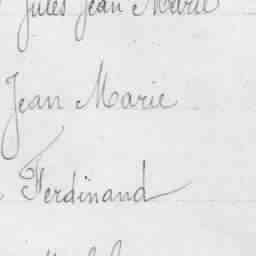 Jules Jean Marie
Jean Marie
Ferdinand